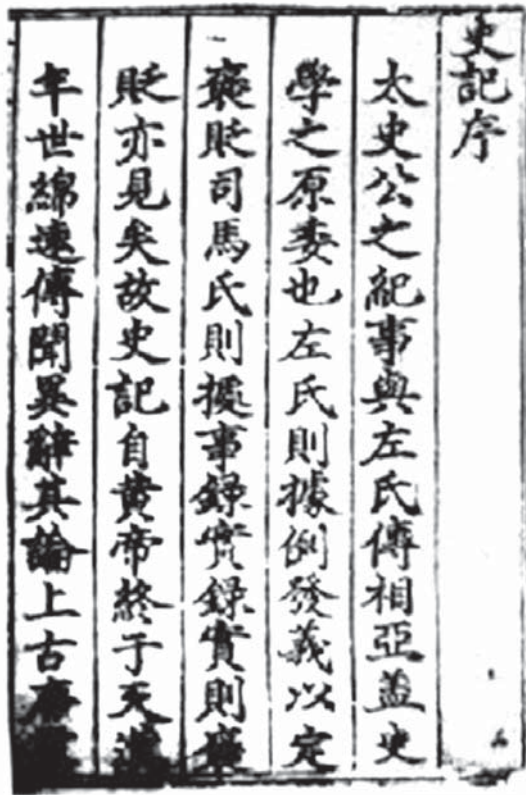 史記序
太史公之紀事與左氏傳相亞盖史
學之原委也左氏則據例發義以定
襃貶司馬氏則據事錄實錄實則襃
貶亦見矣故史記自黄帝終于天漢
年世綿遠傳聞異辭其論上古